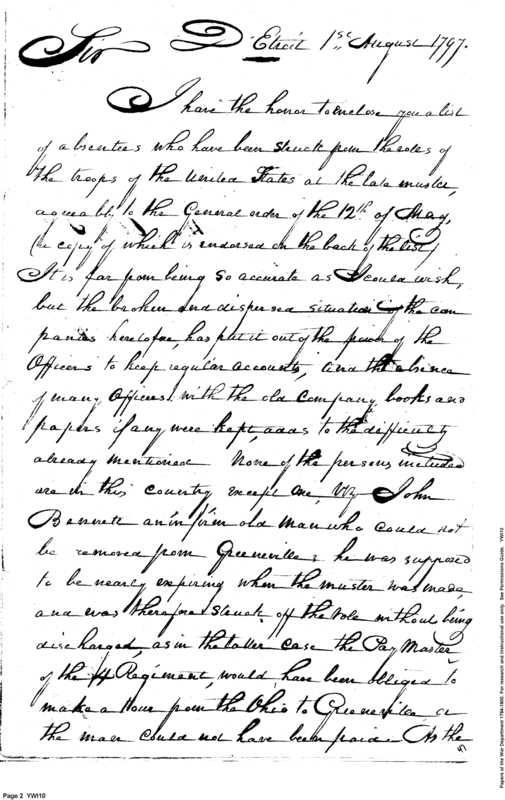 Sir Detroit 1st August 1797.
I have the honor to enclose you a list
of absentees who have been struck from the roles of
the troops of the United States at the late muster,
agreeably to the General order of the 12th of May,
(a copy of which is endorsed on the back of the list)
It is far from being so accurate as I could wish,
but the broken and dispersed situation of the com
panies heretofore, has put it out of the power of the
Officers to keep regular accounts, and the absence
of many Officers with the old Company books and
papers if any were kept, adds to the difficulty
already mentioned None of the persons included
are in this country except one, Viz John
Bennett an infirm old man who could not
be removed from Greeneville; he was supposed
to be nearly expiring when the muster was made,
and was therefore struck off the role without being
discharged, as in the latter case the Pay Master
of the 4 Regiment, would have been obliged to
make a tour from the Ohio to Greeneville or
the man could not have been paid— As the
Papers of the War Department 1784-1800. For research and instructional use only. See Permissions Guide. YWI10
Page 2 YWI10